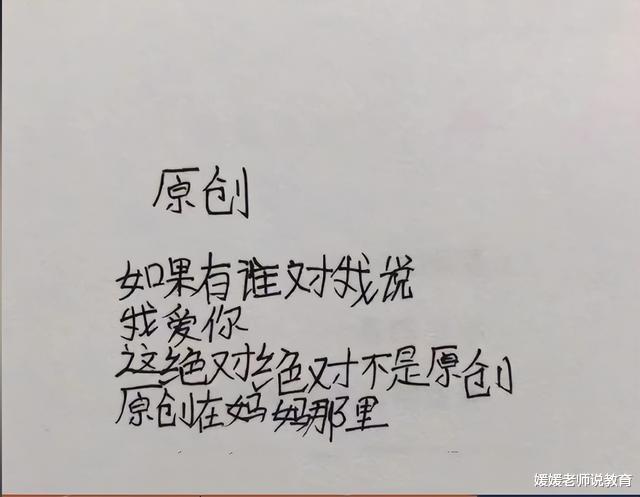 原创
如果有谁对我说
我爱你
这绝对绝对不是原创
原创在妈妈那里
媛媛老师说教育